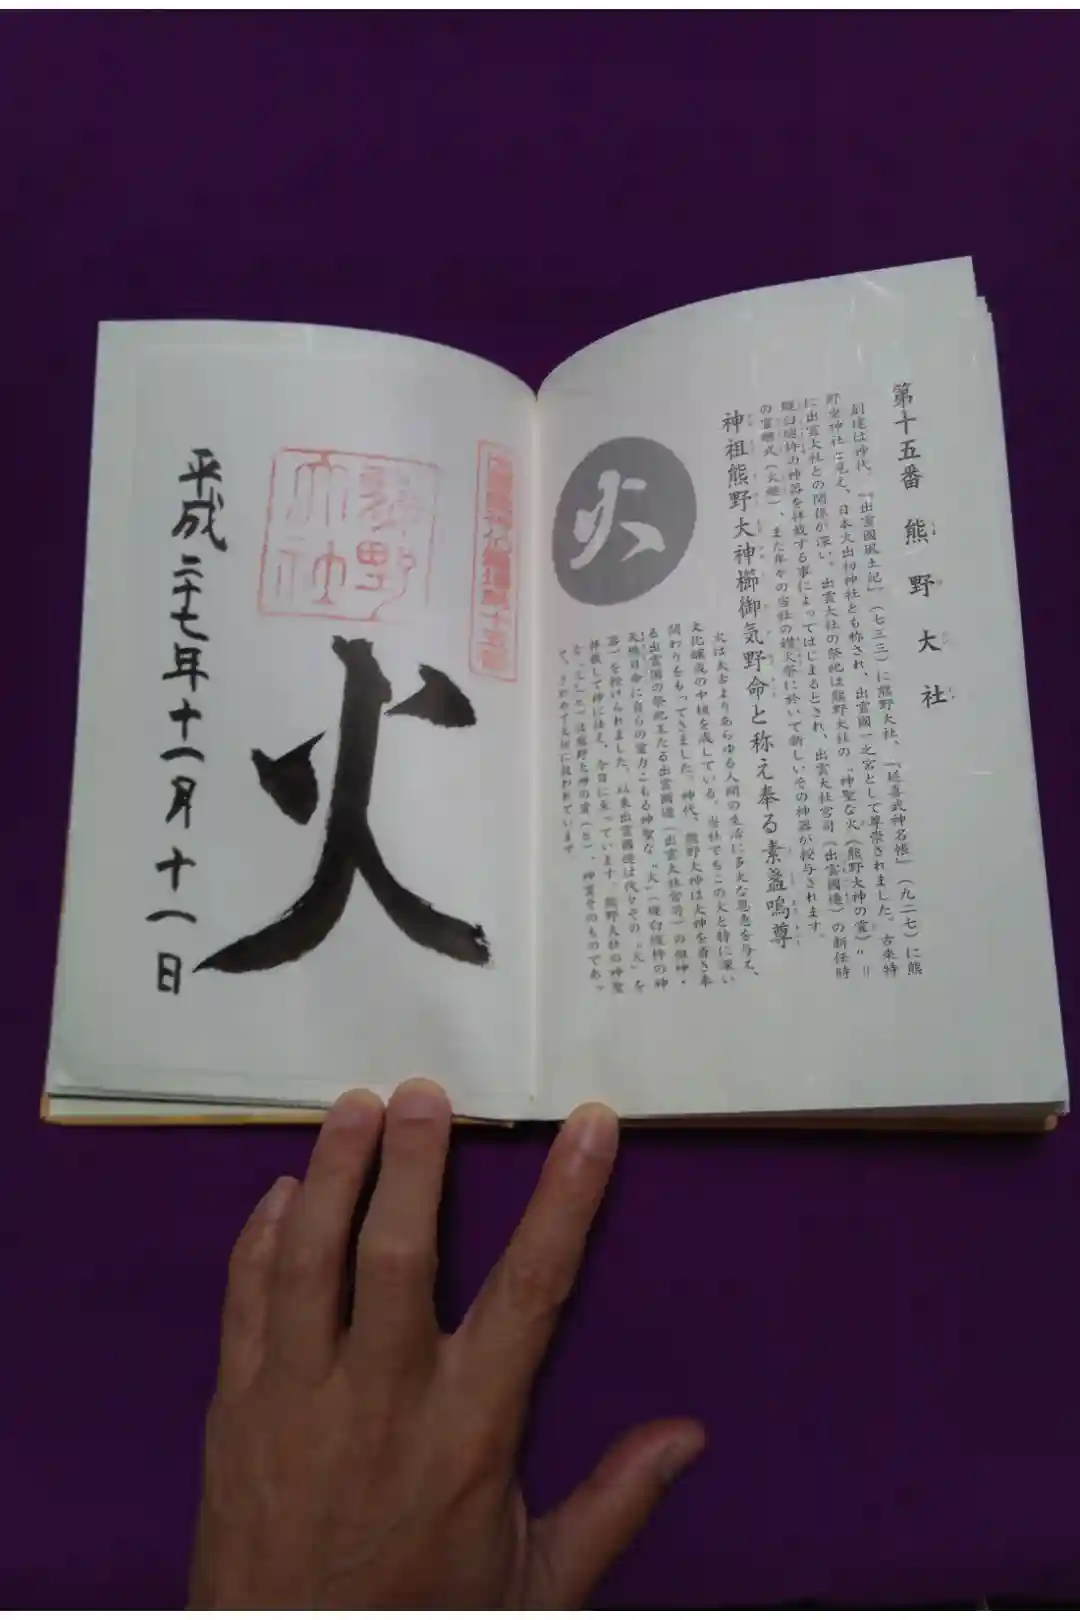 第十五番 熊野大社
創建は神代、『出雲國風土記』(七三三)に熊野大社、『延喜式神名帳』(九二七)に熊
野坐神社と見え、日本火出初神社とも称され、出雲國一之宮として尊崇されました。古来特
に出雲大社との関係が深い。出雲大社の祭祀は熊野大社の“神聖な火(熊野大神の霊)”=
燧臼燧杵の神器を拝戴する事によってはじまるとされ、出雲大社宮司(出雲國造)の新任時
の霊継式(火継)、また年々の当社の鑽火祭に於いて新しいその神器が授与されます。
神祖熊野大神櫛御気野命と称え奉る素盞嗚尊
火
火は太古よりあらゆる人間の生活に多大な恩恵を与え、
文化醸成の中核を成している。当社でもこの火と特に深い
関わりをもってきました。神代、熊野大神は大神を斎き奉
る出雲国の祭祀王たる出雲國造(出雲大社宮司)の祖神・
天穂日命に自らの霊力こもる神聖な“火”(燧臼燧杵の神
器)を授けられました。以来出雲國造は代々その“火”を
拝戴して神に仕え、今日に至っています。熊野大社の神聖
な“火”とは熊野大神の霊(ヒ)、神霊そのものであっ
て、きわめて大切に扱われています
熊野
大社
火
平成二十七年十一月十一日